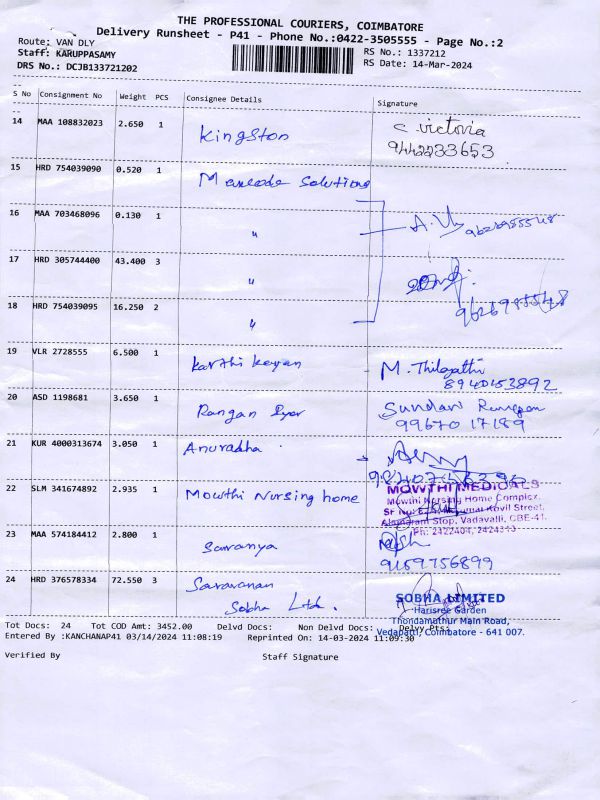 THE PROFESSIONAL COURIERS, COIMBATORE
Delivery Runsheet - P41 - Phone No.:0422-3505555 - Page No.:2
Route: VAN DLY
Staff: KARUPPASAMY
RS No.: 1337212
DRS No.: DCJB133721202
RS Date: 14-Mar-2024
S No Consignment No Weight PCS Consignee Details Signature
14 MAA 108832023 2.650 1 Kingston C. Victoria
9442233653
15 HRD 754039090 0.520 1 Solutions
16 MAA 703468096 0.130 1 "
17 HRD 305744400 43.400 3 "
18 HRD 754039095 16.250 2 "
19 VLR 2728555 6.500 1 Karthi Keyan M. Thilagathi
8940153892
20 ASD 1198681 3.650 1 Rangan Iyer Sundar
99670 17189
21 KUR 4000313674 3.050 1 Anuradha
22 SLM 341674892 2.935 1 Mowthi Nursing home
MOWTHI MEDICALS
Mowthi Nursing Home Complex,
Kovil Street,
Stop, Vadavalli, CBE-41.
Ph: 2422404, 2424343
23 MAA 574184412 2.800 1 Saranya
9159756899
24 HRD 376578334 72.550 3 Saravanan
Sobha Ltd.
SOBHA LIMITED
Harisree Garden
Thondamuthur Main Road,
Vedapatti, Coimbatore - 641 007.
Tot Docs: 24 Tot COD Amt: 3452.00 Delvd Docs: Non Delvd Docs: Delvy Pts:
Entered By :KANCHANAP41 03/14/2024 11:08:19 Reprinted On: 14-03-2024 11:09:30
Verified By Staff Signature